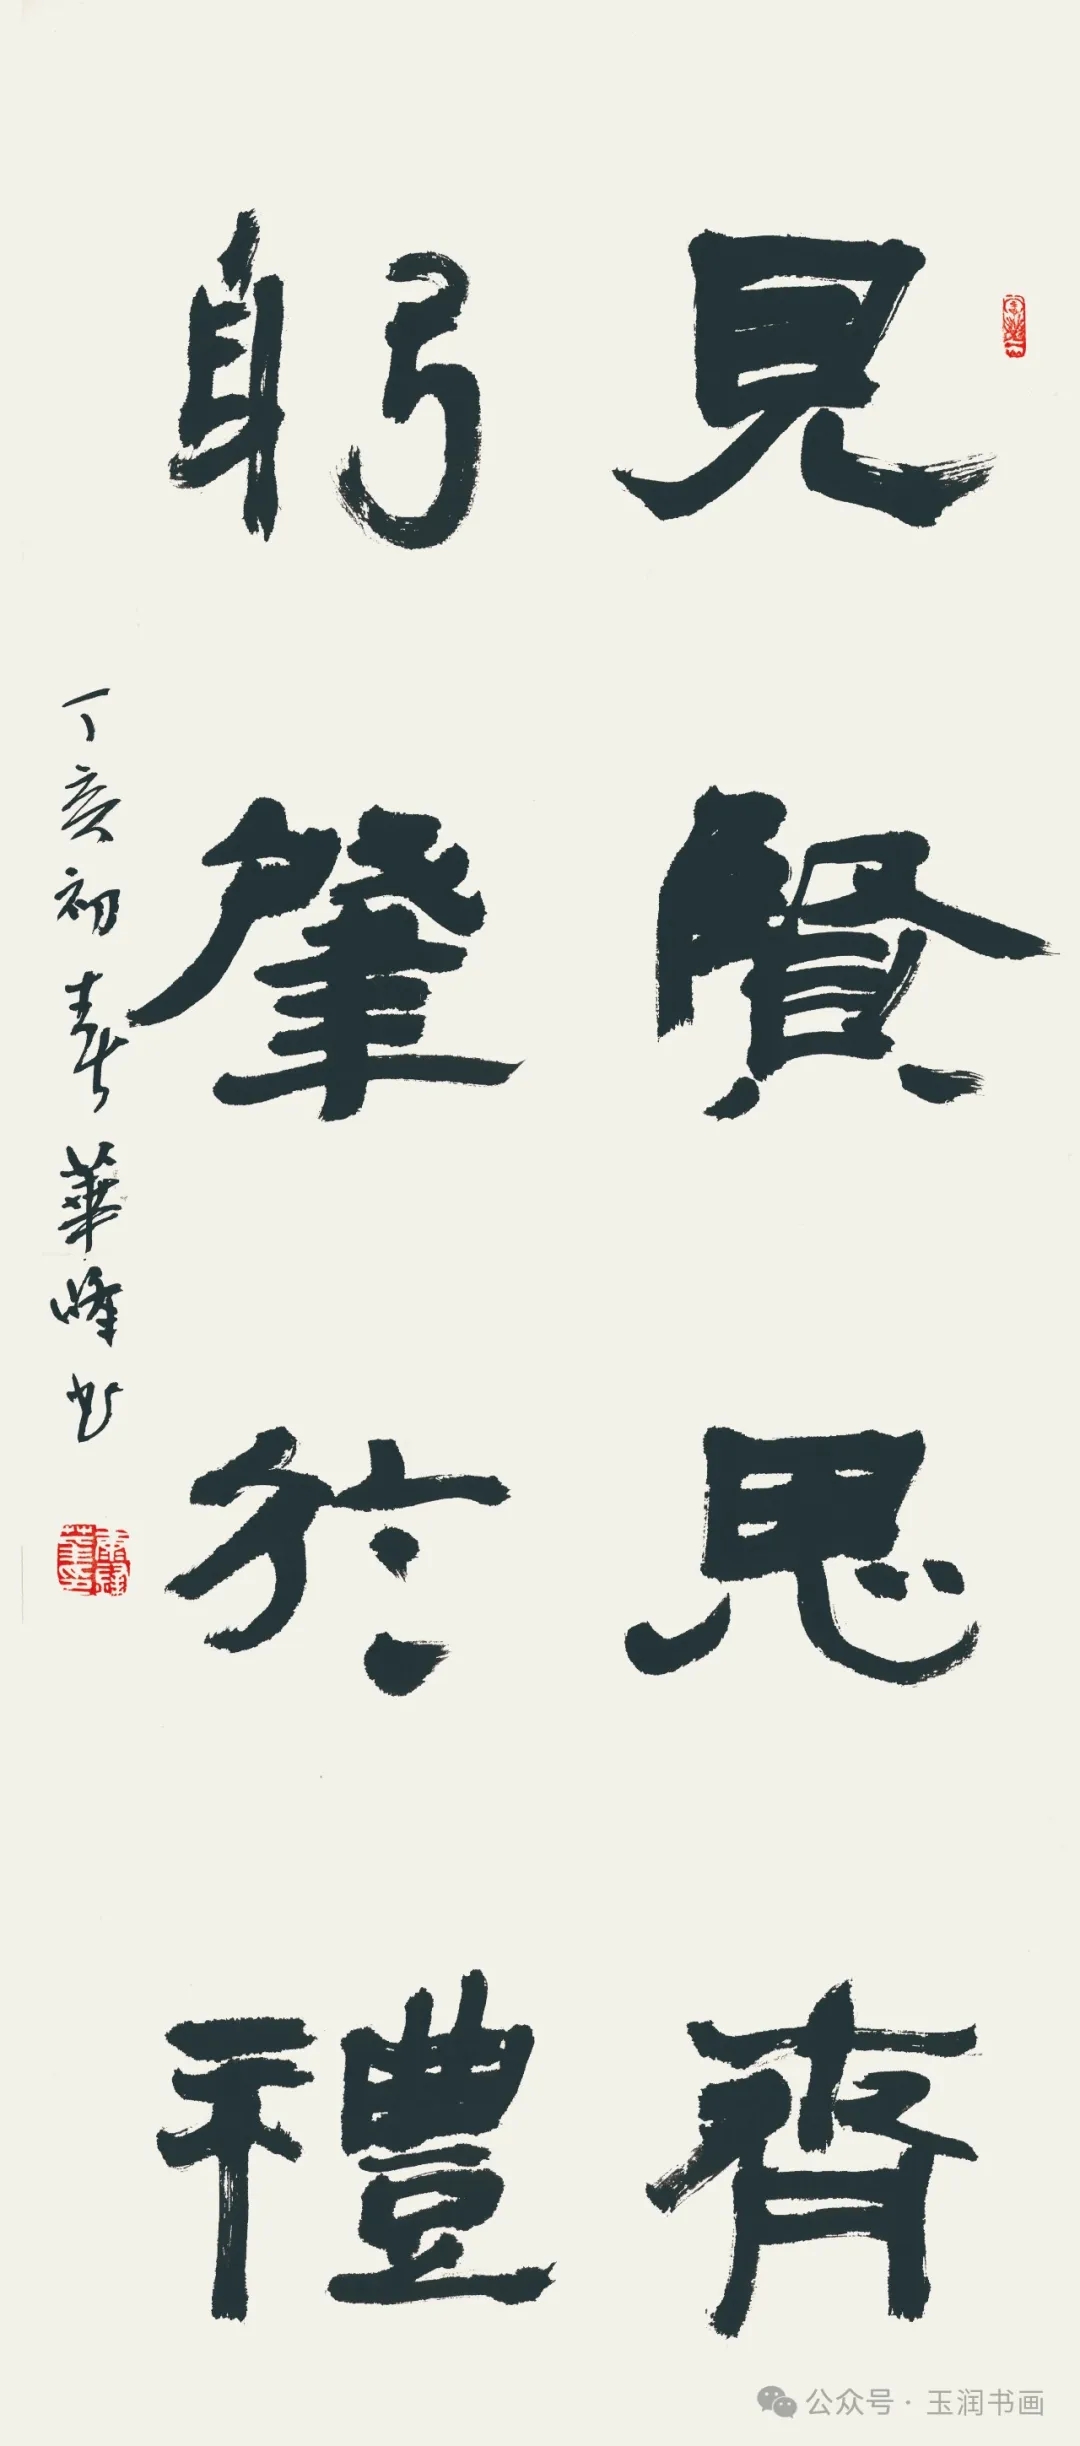 見賢思齊
躬肇於禮
丁亥初春華峰书
公众号·玉润书画